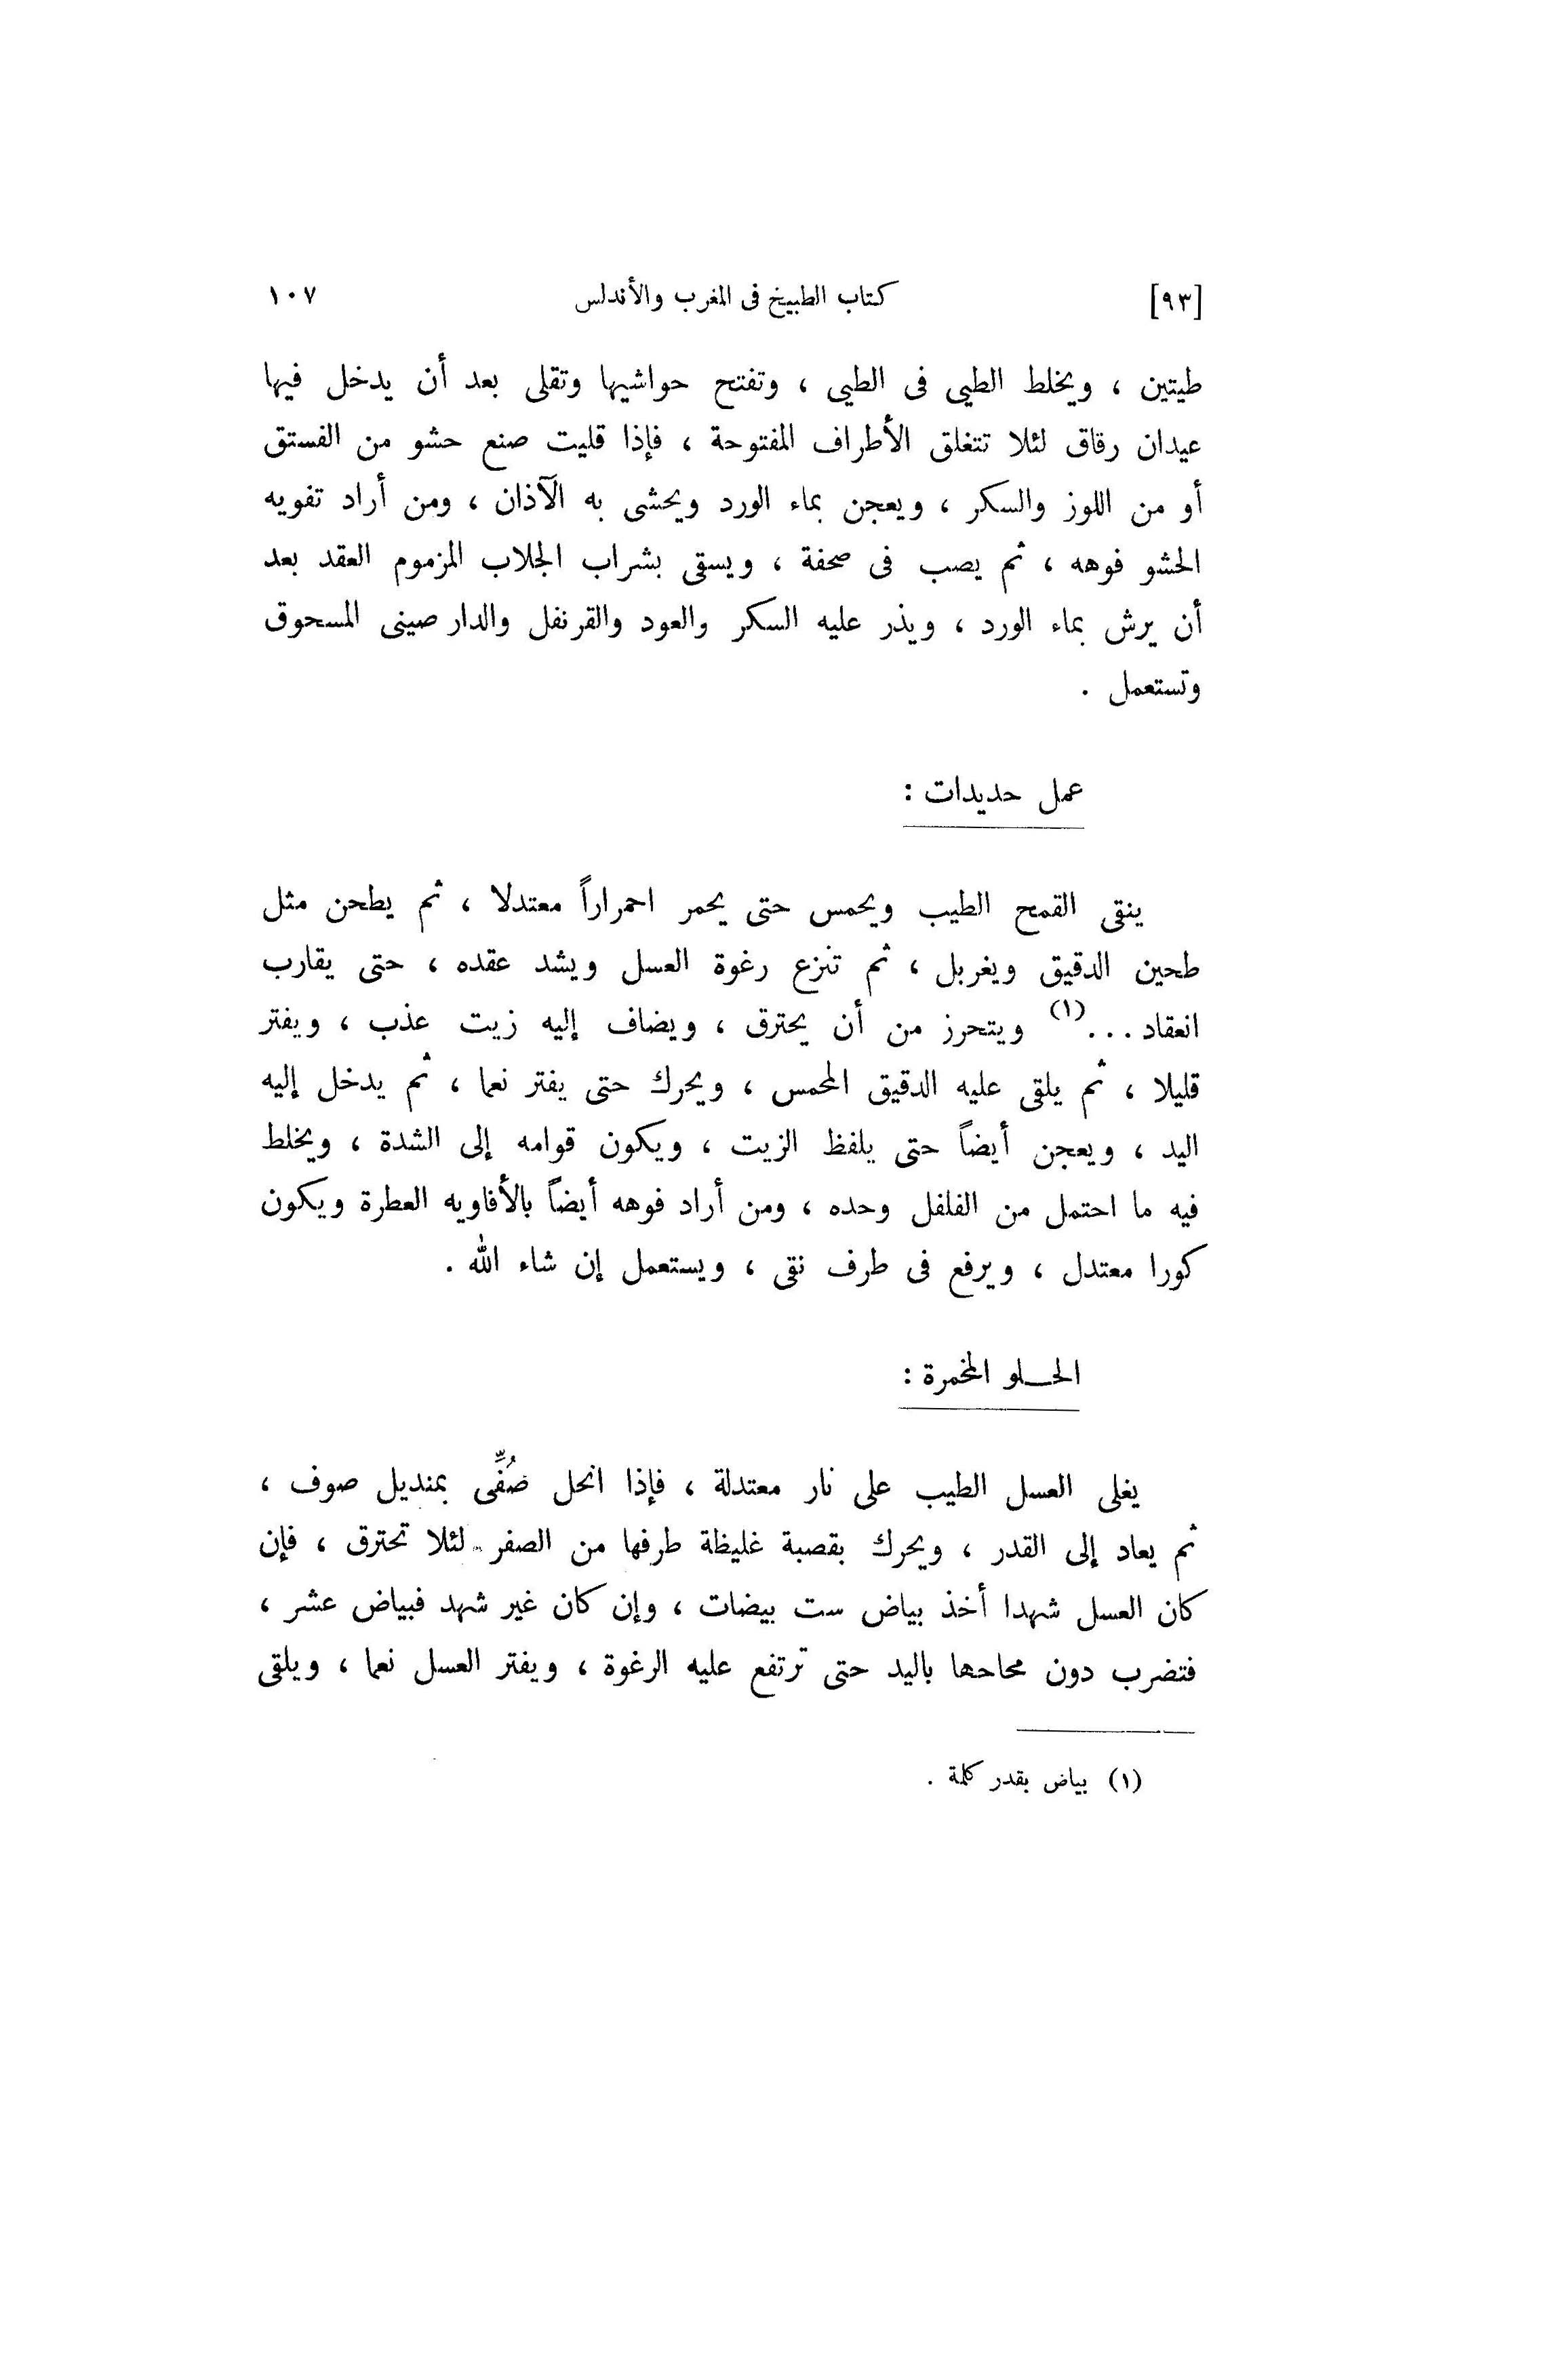 [٩٣] كتاب الطبيخ فى المغرب والأندلس ١٠٧
طيتين ، ويخلط الطيى فى الطيى ، وتفتح حواشيها وتقلى بعد أن يدخل فيها
عيدان رقاق لئلا تتغلق الأطراف المفتوحة ، فإذا قليت صنع حشو من الفستق
أو من اللوز والسكر ، ويعجن بماء الورد ويحشى به الآذان ، ومن أراد تفويه
الحشو فوهه ، ثم يصب فى صحفة ، ويسقى بشراب الجلاب المزموم العقد بعد
أن يرش بماء الورد ، ويذر عليه السكر والعود والقرنفل والدار صينى المسحوق
وتستعمل .
عمل حديدات :
ينقى القمح الطيب ويحمس حتى يحمر احمراراً معتدلا ، ثم يطحن مثل
طحين الدقيق ويغربل ، ثم تنزع رغوة العسل ويشد عقده ، حتى يقارب
انعقاد ...(١) ويتحرز من أن يحترق ، ويضاف إليه زيت عذب ، ويفتر
قليلا ، ثم يلقى عليه الدقيق المحمس ، ويحرك حتى يفتر نعما ، ثم يدخل إليه
اليد ، ويعجن أيضاً حتى يلفظ الزيت ، ويكون قوامه إلى الشدة ، ويخلط
فيه ما احتمل من الفلفل وحده ، ومن أراد فوهه أيضاً بالأفاويه العطرة ويكون
كورا معتدل ، ويرفع فى طرف نقى ، ويستعمل إن شاء الله .
الحلو المخمرة :
يغلى العسل الطيب على نار معتدلة ، فإذا انحل صُفِّى بمنديل صوف ،
ثم يعاد إلى القدر ، ويحرك بقصبة غليظة طرفها من الصفر لئلا تحترق ، فإن
كان العسل شهدا أخذ بياض ست بيضات ، وإن كان غير شهد فبياض عشر ،
فتضرب دون محاحها باليد حتى ترتفع عليه الرغوة ، ويفتر العسل نعما ، ويلقى
(١) بياض بقدر كلمة .